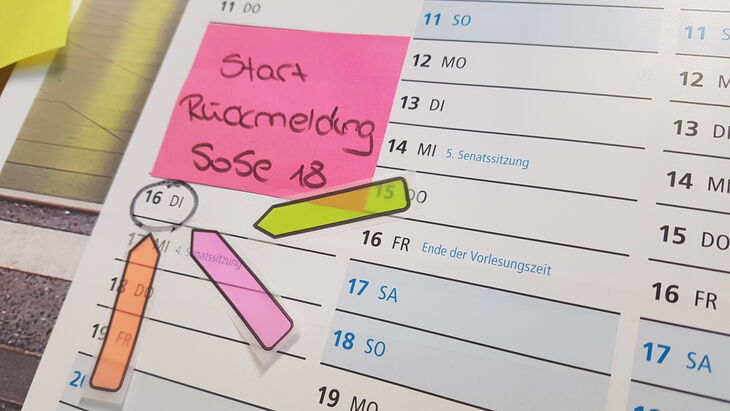 11 DO
Start
Rückmeldung
SoSe 18
16 DI
17 MI 4. Senatssitzung
18 DO
19 FR
11 SO
12 MO
13 DI
14 MI 5. Senatssitzung
15 DO
16 FR Ende der Vorlesungszeit
17 SA
18 SO
19 MO
11 S
12 M
13 DI
14 MI
15 DO
16 FR
17 SA